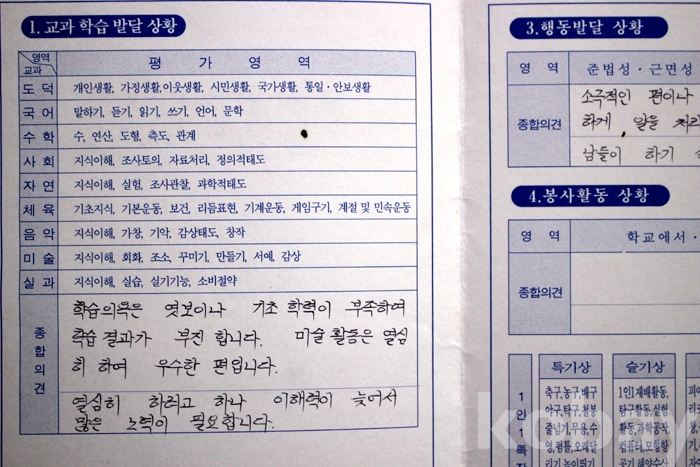 1. 교과 학습 발달 상황
영역
교과
평 가 영 역
도 덕 개인생활, 가정생활,이웃생활, 시민생활, 국가생활, 통일·안보생활
국 어 말하기, 듣기, 읽기, 쓰기, 언어, 문학
수 학 수, 연산, 도형, 측도, 관계
사 회 지식이해, 조사토의, 자료처리, 정의적태도
자 연 지식이해, 실험, 조사관찰, 과학적태도
체 육 기초지식, 기본운동, 보건, 리듬표현, 기계운동, 게임구기, 계절 및 민속운동
음 악 지식이해, 가창, 기악, 감상태도, 창작
미 술 지식이해, 회화, 조소, 꾸미기, 만들기, 서예, 감상
실 과 지식이해, 실습, 실기기능, 소비절약
종합의견
학습의욕은 엿보이나 기초 학력이 부족하여
학습 결과가 부진 합니다. 미술 활동은 열심
히 하여 우수한 편입니다.
열심히 하려고 하나 이해력이 늦어서
많은 노력이 필요합니다.
3.행동발달 상황
영 역 준법성·근면성
종합의견
소극적인 편이나
하게, 일을 처리
남들이 하기
4.봉사활동 상황
영 역 학교에서·
종합의견
1인1특
특기상 슬기상
축구,농구,배구 1인1재배활동,
야구,탁구,창봉 탐구활동,실험
줄넘기,무용,수 활동,과학공작,
영,뜀틀,오래달 컴퓨터,모형항
리기,높이뛰기 공기,해양소년